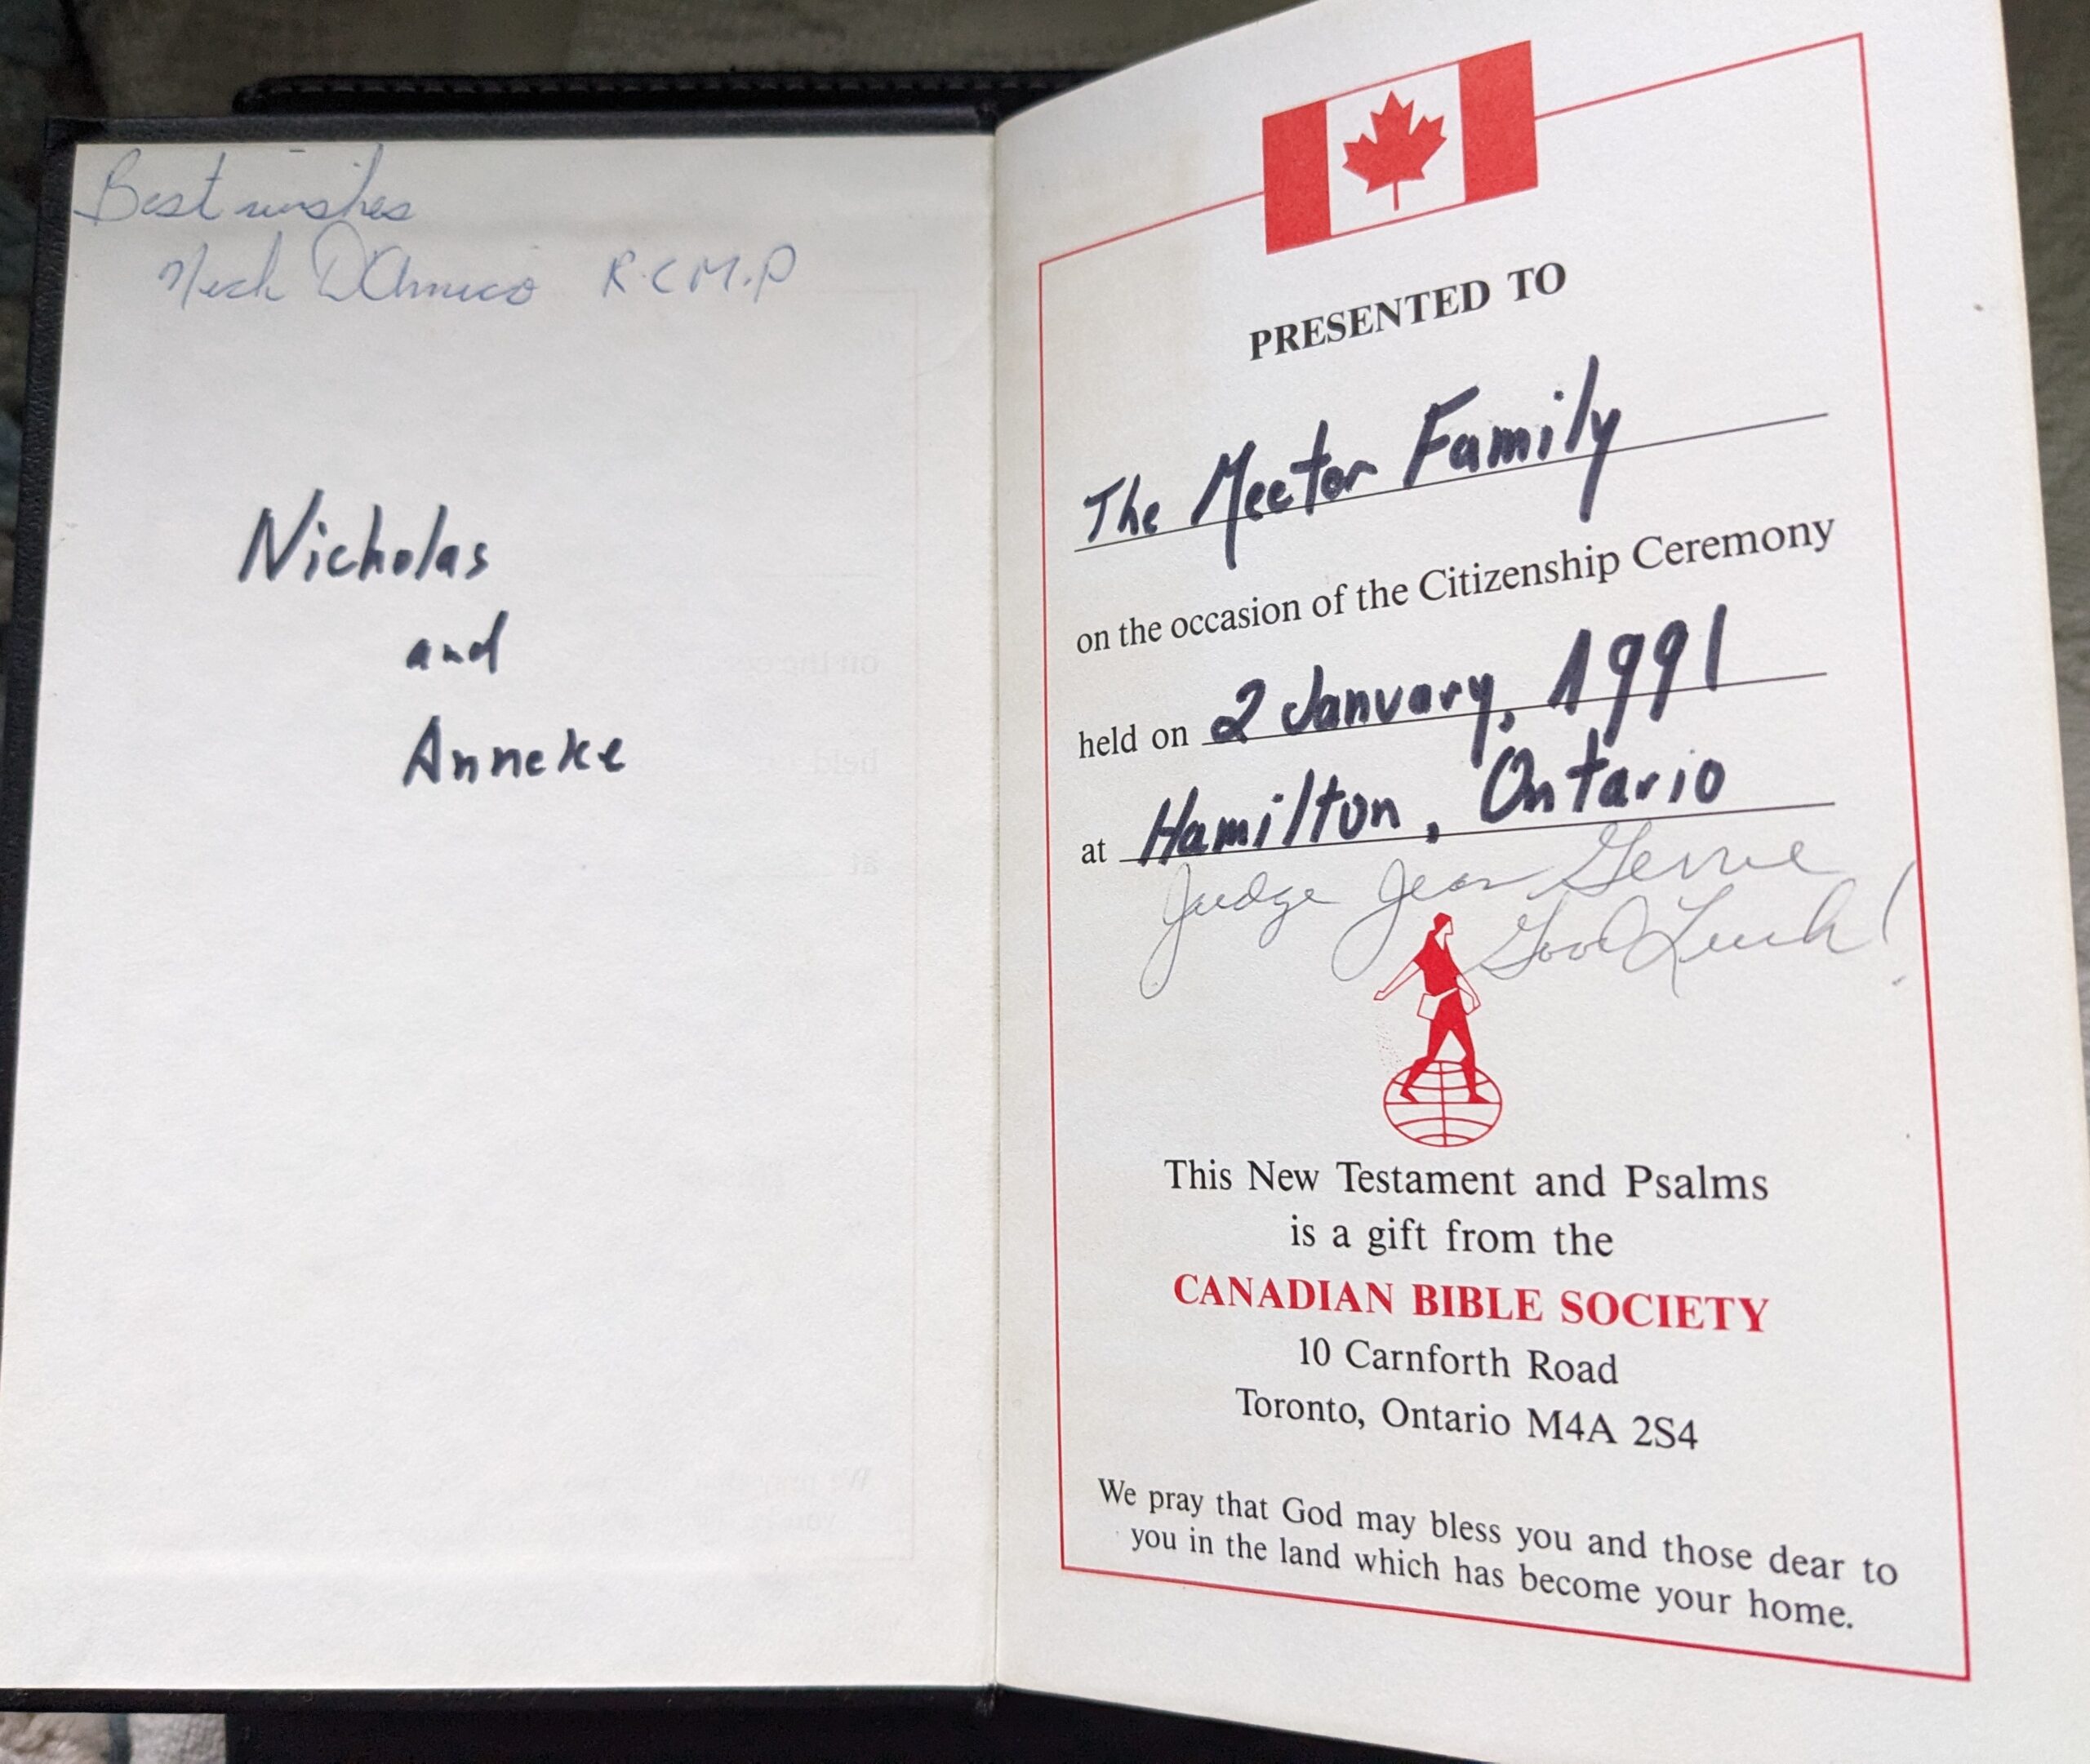 Best wishes
Nick D'Amico R.C.M.P
Nicholas
and
Anneke
PRESENTED TO
The Meetor Family
on the occasion of the Citizenship Ceremony
held on 2 January, 1991
at Hamilton, Ontario
Judge Jean
Good Luck!
This New Testament and Psalms
is a gift from the
CANADIAN BIBLE SOCIETY
10 Carnforth Road
Toronto, Ontario M4A 2S4
We pray that God may bless you and those dear to
you in the land which has become your home.